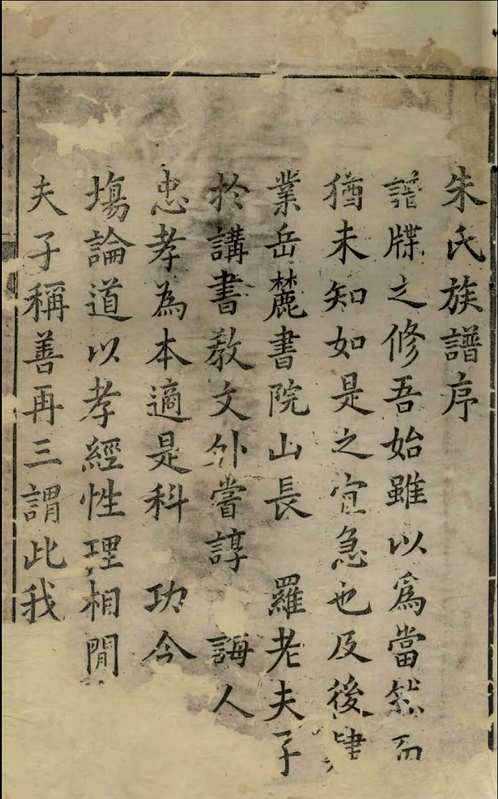 朱氏族譜序
譜牒之修吾始雖以爲當然而
猶未知如是之宜急也及後肄
業岳麓書院山長 羅老夫子
於講書教文外嘗諄 誨人
忠孝為本適是科 功令
塲論道以孝經性理相間
夫子稱善再三謂此我